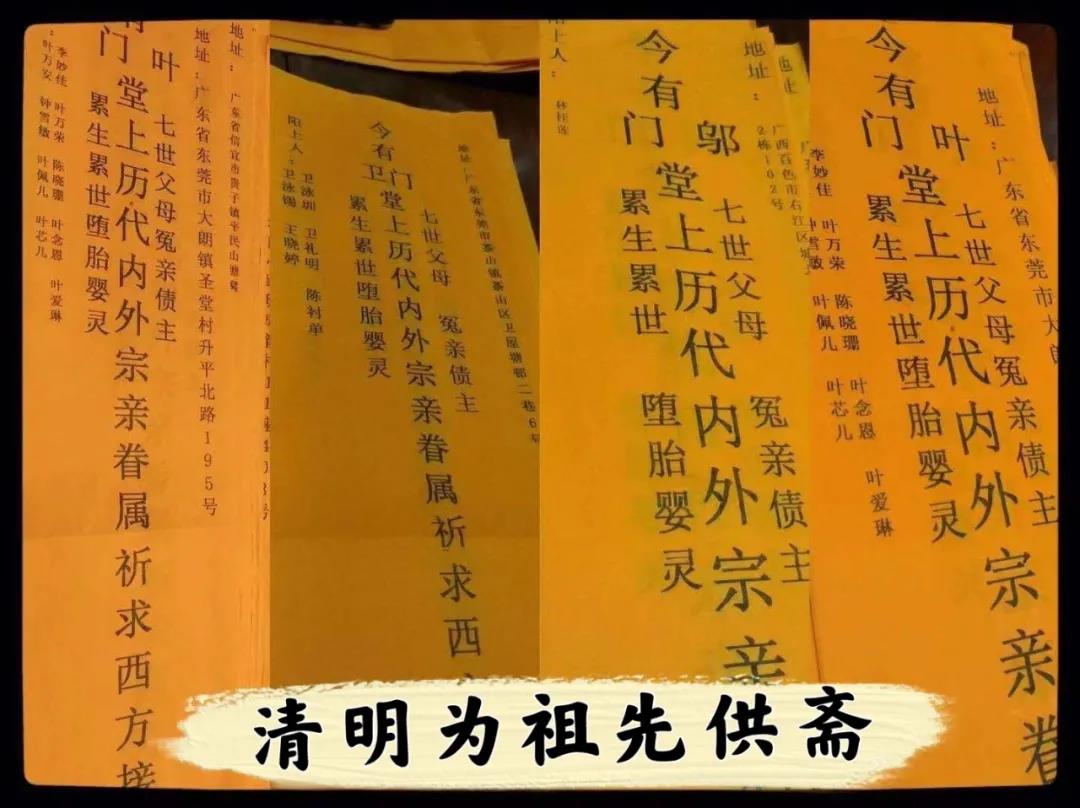 地址： 广东省信宜市贵子镇平民山塘
地址：广东省东莞市大朗镇圣堂村升平北路195号
叶 七世父母冤亲债主
有门堂上历代内外宗亲眷属祈求西方接
累生累世堕胎婴灵
李妙佳 叶万荣 陈晓珊 叶念恩 叶爱琳
叶万安 钟雪敏 叶佩儿 叶芯儿
地址:广东省东莞市茶山镇茶山区卫屋塘邨二巷6号
七世父母 冤亲债主
今有卫门堂上历代内外宗亲眷属祈求西
累生累世堕胎婴灵
阳上人： 卫泳圳 卫礼明 陈衬单
卫泳锡 王晓婷
地址：
地址： 广西百色市右江区城
2栋102号
邬 七世父母 冤亲债主
今有门堂上历代内外宗亲
累生累世 堕胎婴灵
上人： 林桂莲
地址：广东省东莞市大朗
叶 七世父母冤亲债主
今有门堂上历代内外宗亲眷
累生累世堕胎婴灵
李妙佳 叶万荣 陈晓珊 叶念恩 叶爱琳
钟雪敏 叶佩儿 叶芯儿
清明为祖先供斋